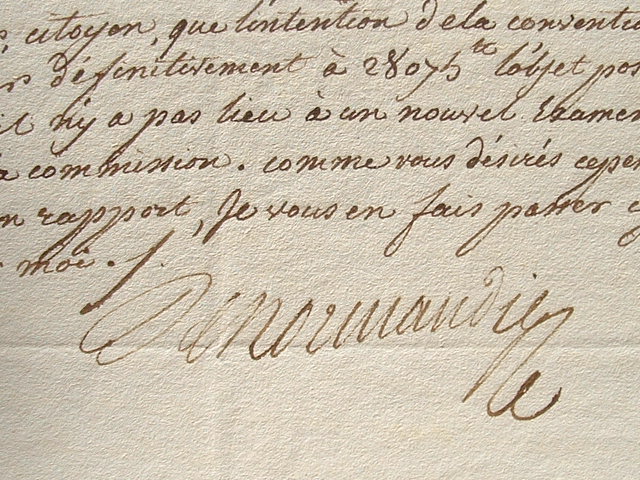 citoyen, que l'intention dela conventi
définitivement à 28075tt l'objet por
il n'y a pas lieu à un nouvel Examen
a commission. comme vous désirés cepe
n rapport, Je vous en fais passer c
moi ./.
Denormandie